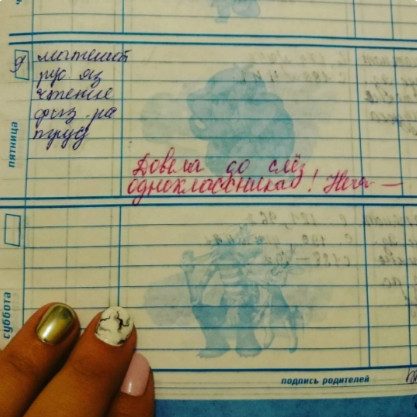 9
математ
рус яз
чтение
физ-ра
труд
пятница
Довела до слёз
одноклассника!
суббота
подпись родителей